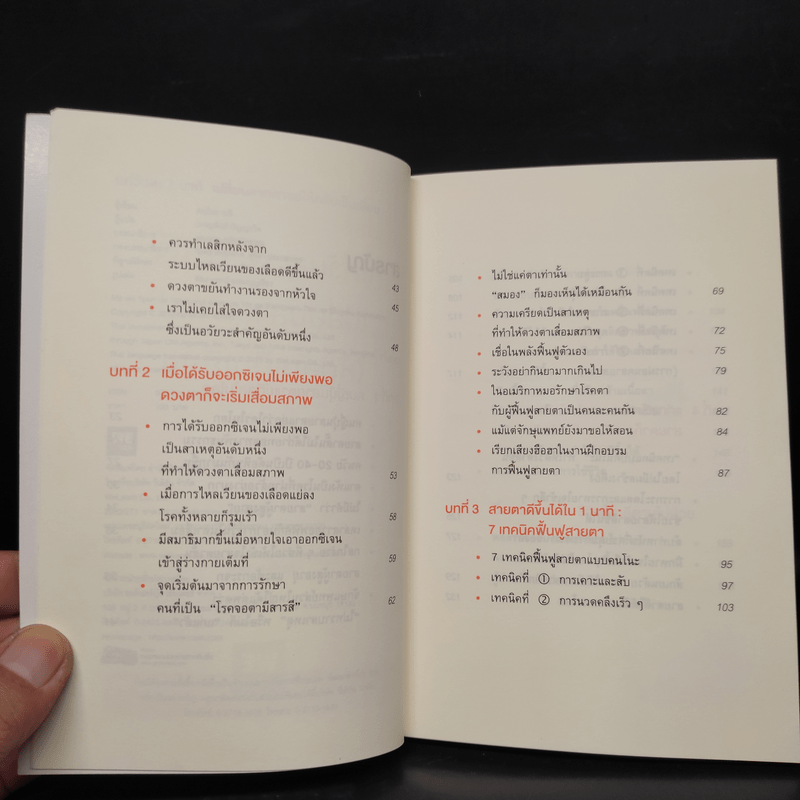 • ควรทำเลสิกหลังจาก
ระบบไหลเวียนของเลือดดีขึ้นแล้ว 43
• ดวงตาขยันทำงานรองจากหัวใจ 45
• เราไม่เคยใส่ใจดวงตา
ซึ่งเป็นอวัยวะสำคัญอันดับหนึ่ง 48
บทที่ 2 เมื่อได้รับออกซิเจนไม่เพียงพอ
ดวงตาก็จะเริ่มเสื่อมสภาพ
• การได้รับออกซิเจนไม่เพียงพอ
เป็นสาเหตุอันดับหนึ่ง
ที่ทำให้ดวงตาเสื่อมสภาพ 53
• เมื่อการไหลเวียนของเลือดแย่ลง
โรคทั้งหลายก็รุมเร้า 58
• มีสมาธิมากขึ้นเมื่อหายใจเอาออกซิเจน
เข้าสู่ร่างกายเต็มที่ 59
• จุดเริ่มต้นมาจากการรักษา
คนที่เป็น “โรคจอตามีสารสี” 62
• ไม่ใช่แค่ตาเท่านั้น
“สมอง” ก็มองเห็นได้เหมือนกัน 69
• ความเครียดเป็นสาเหตุ
ที่ทำให้ดวงตาเสื่อมสภาพ 72
• เชื่อในพลังฟื้นฟูตัวเอง 75
• ระวังอย่ากินยามากเกินไป 79
• ในอเมริกาหมอรักษาโรคตา
กับผู้ฟื้นฟูสายตาเป็นคนละคนกัน 82
• แม้แต่จักษุแพทย์ยังมาขอให้สอน 84
• เรียกเสียงฮือฮาในงานฝึกอบรม
การฟื้นฟูสายตา 87
บทที่ 3 สายตาดีขึ้นได้ใน 1 นาที :
7 เทคนิคฟื้นฟูสายตา
• 7 เทคนิคฟื้นฟูสายตาแบบคนโนะ 95
• เทคนิคที่ ① การเคาะและสับ 97
• เทคนิคที่ ② การนวดคลึงเร็ว ๆ 103